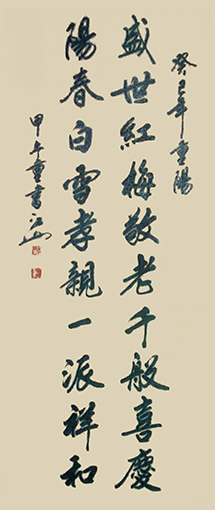 癸巳年重陽
盛世紅梅敬老千般喜慶
陽春白雪孝親一派祥和
甲午重書江山